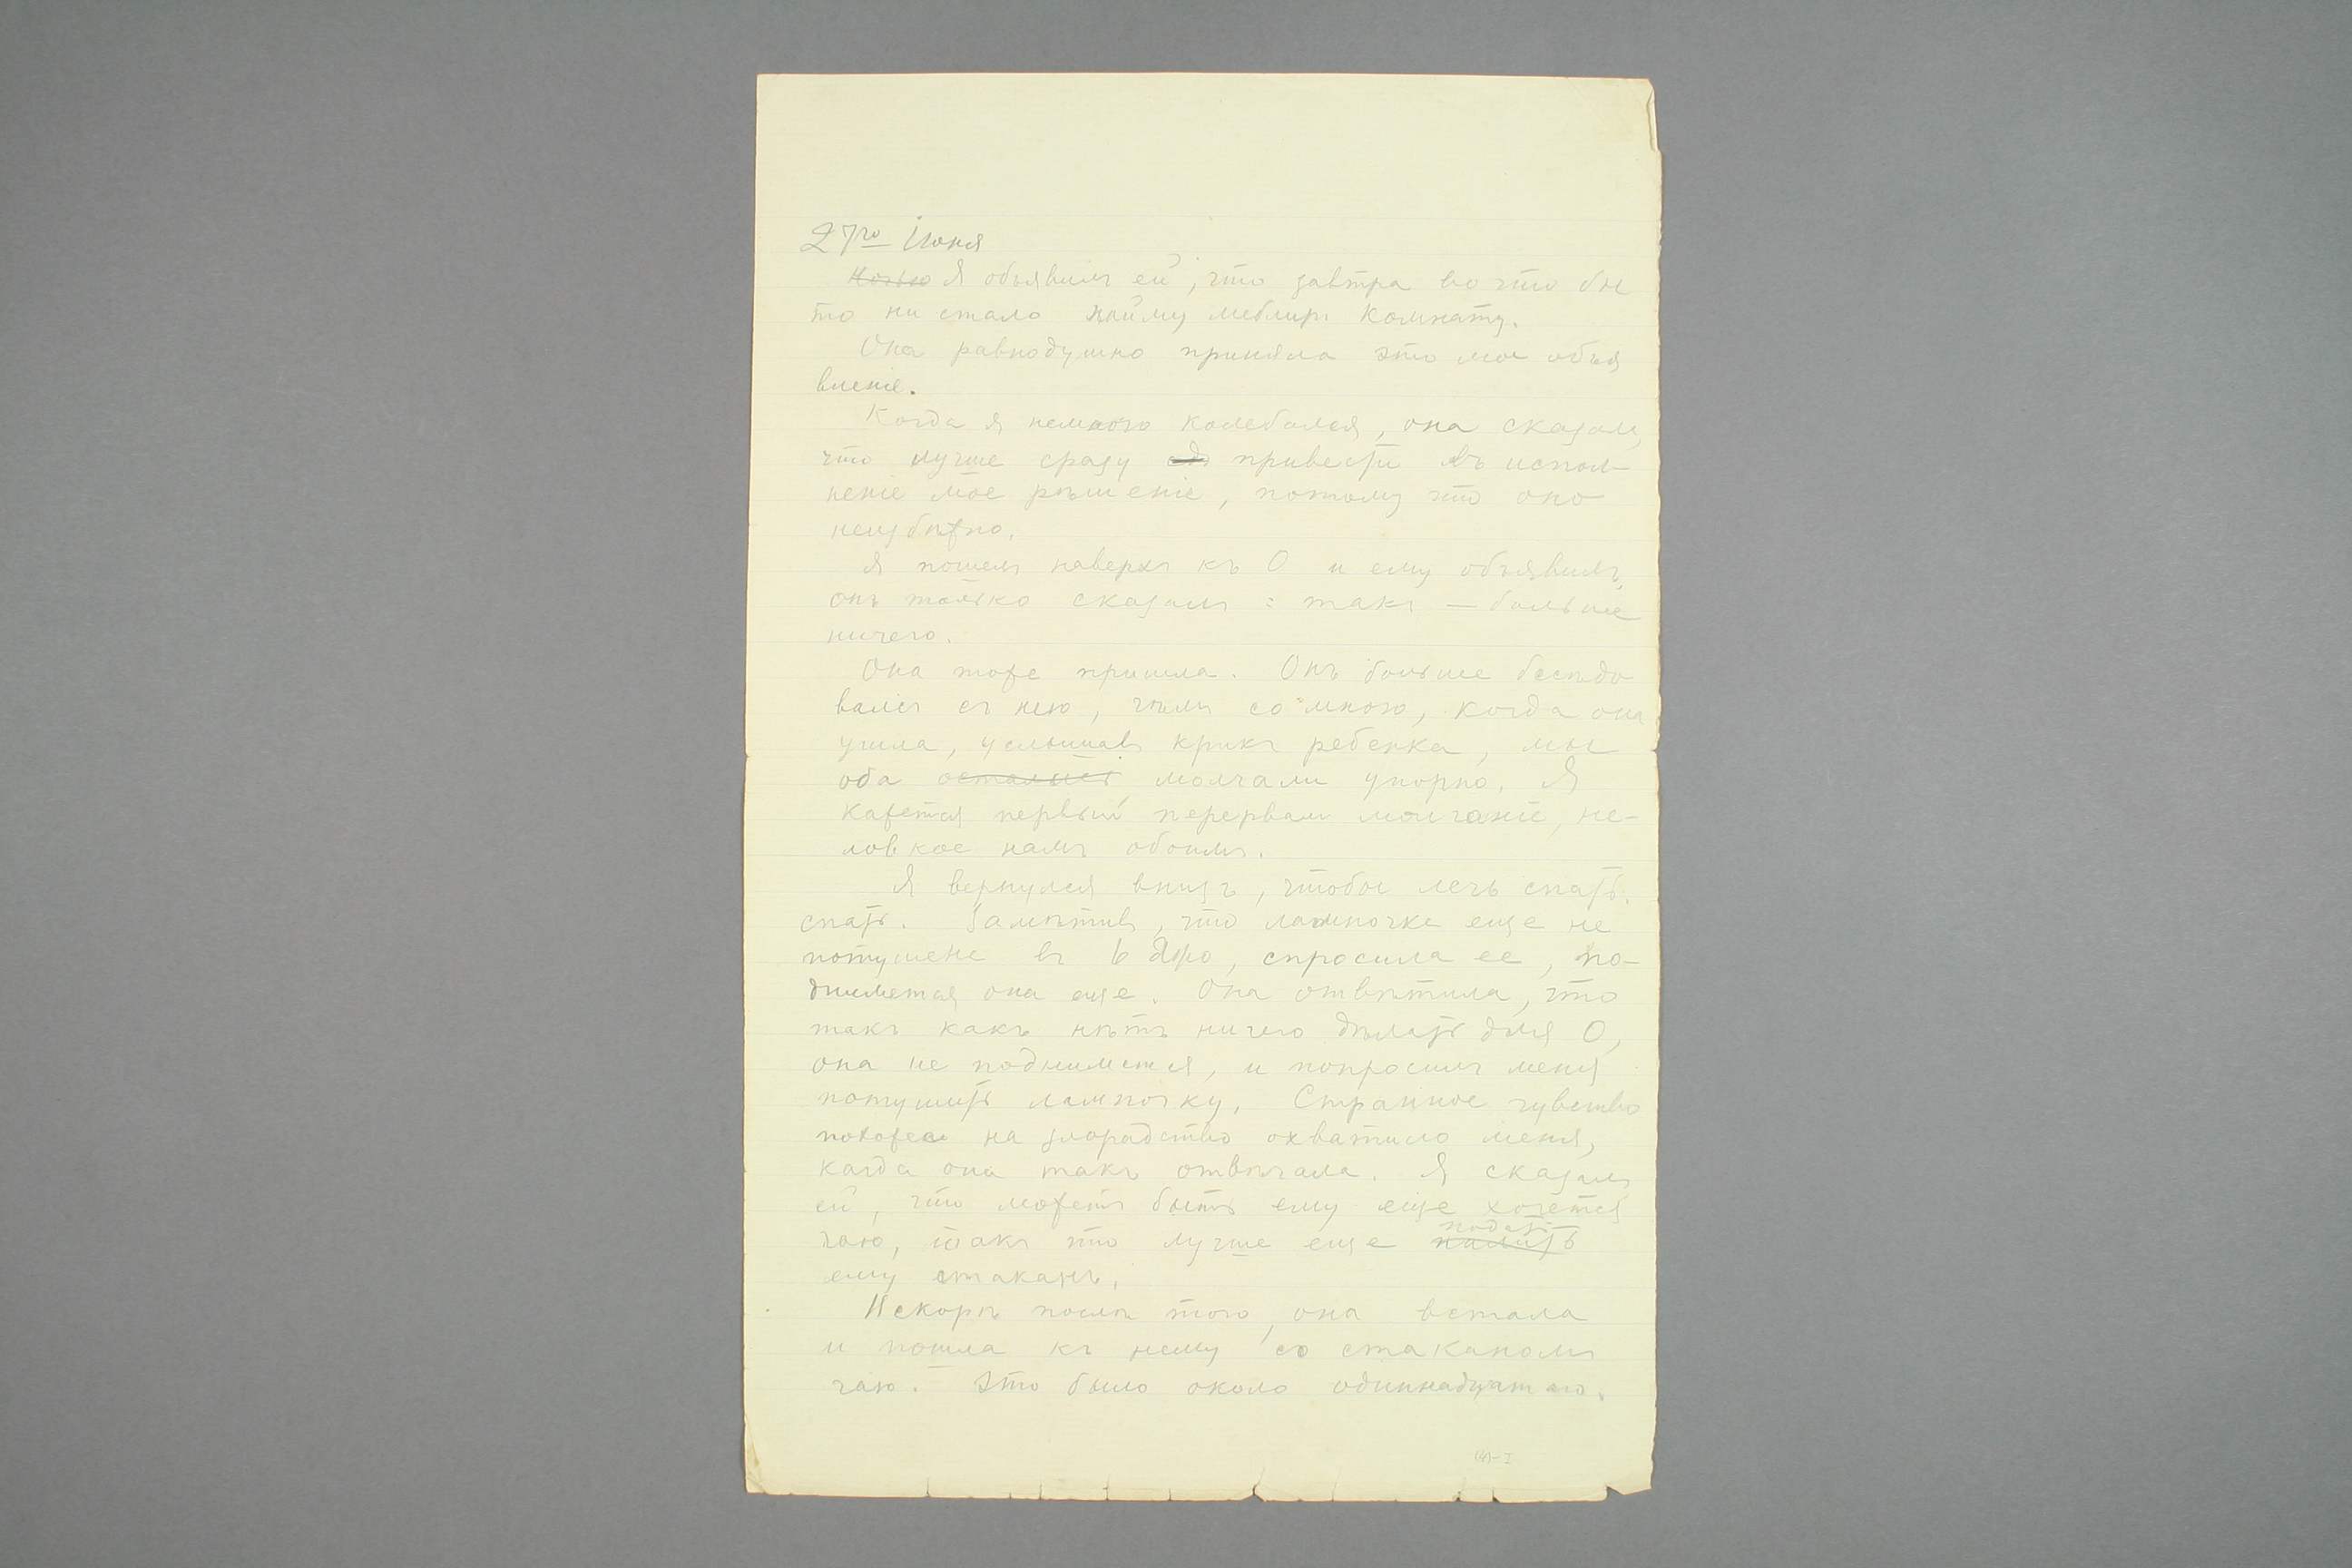 27го Іюня
Ночью Я объявилъ ей, что завтра во что бы
то ни стало найму меблир. комнату.
Она равнодушно приняла это мое объя
вленіе.
Когда я немного колебался, она сказала,
что лучше сразу привести въ испол-
неніе мое рѣшеніе, потому что оно
неизбѣжно.
Я пошелъ наверхъ къ О и ему объявилъ,
онъ только сказалъ: такъ — больше
ничего.
Она тоже пришла. Онъ больше бесѣдо
валъ съ нею, чѣмъ со мною, когда она
ушла, услышавъ крикъ ребенка, мы
оба остались молчали упорно. Я
кажется первый перервалъ молчаніе, не-
ловкое намъ обоимъ.
Я вернулся внизъ, чтобы лечь спать.
спать. Замѣтивъ, что лампочка еще не
потушена въ 6 дзіо, спросила ее, по-
днимется она еще. Она отвѣтила, что
такъ какъ нѣтъ ничего дѣлать для О,
она не поднимется, и попросилъ меня
потушить лампочку. Странное чувство
похожее на злорадство охватило меня,
когда она такъ отвѣчала. Я сказалъ
ей, что можетъ быть ему еще хочется
подать
чаю, такъ что лучше еще налить
ему стаканъ.
Вскорѣ послѣ того, она встала
и пошла къ нему со стаканомъ
чаю. Это было около одиннадцатого.